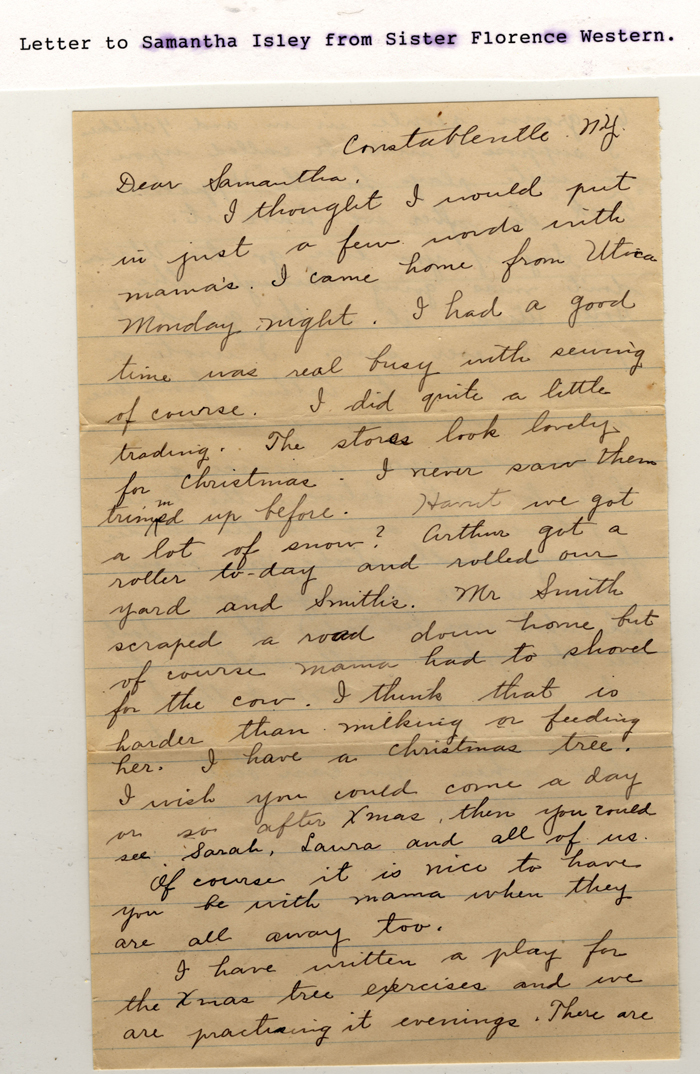 Letter to Samantha Isley from Sister Florence Western.
Constableville N.Y.
Dear Samantha,
I thought I would put
in just a few words with
mama's. I came home from Utica
Monday night. I had a good
time was real busy with sewing
of course. I did quite a little
trading. The stores look lovely
for Christmas. I never saw them
trimmed up before. Havn't we got
a lot of snow? Arthur got a
roller to-day and rolled our
yard and Smith's. Mr Smith
scraped a road down home but
of course mama had to shovel
for the cow. I think that is
harder than milking or feeding
her. I have a Christmas tree.
I wish you could come a day
or so after Xmas, then you could
see Sarah, Laura and all of us.
Of course it is nice to have
you be with mama when they
are all away too.
I have written a play for
the Xmas tree exercises and we
are practicing it evenings. There are